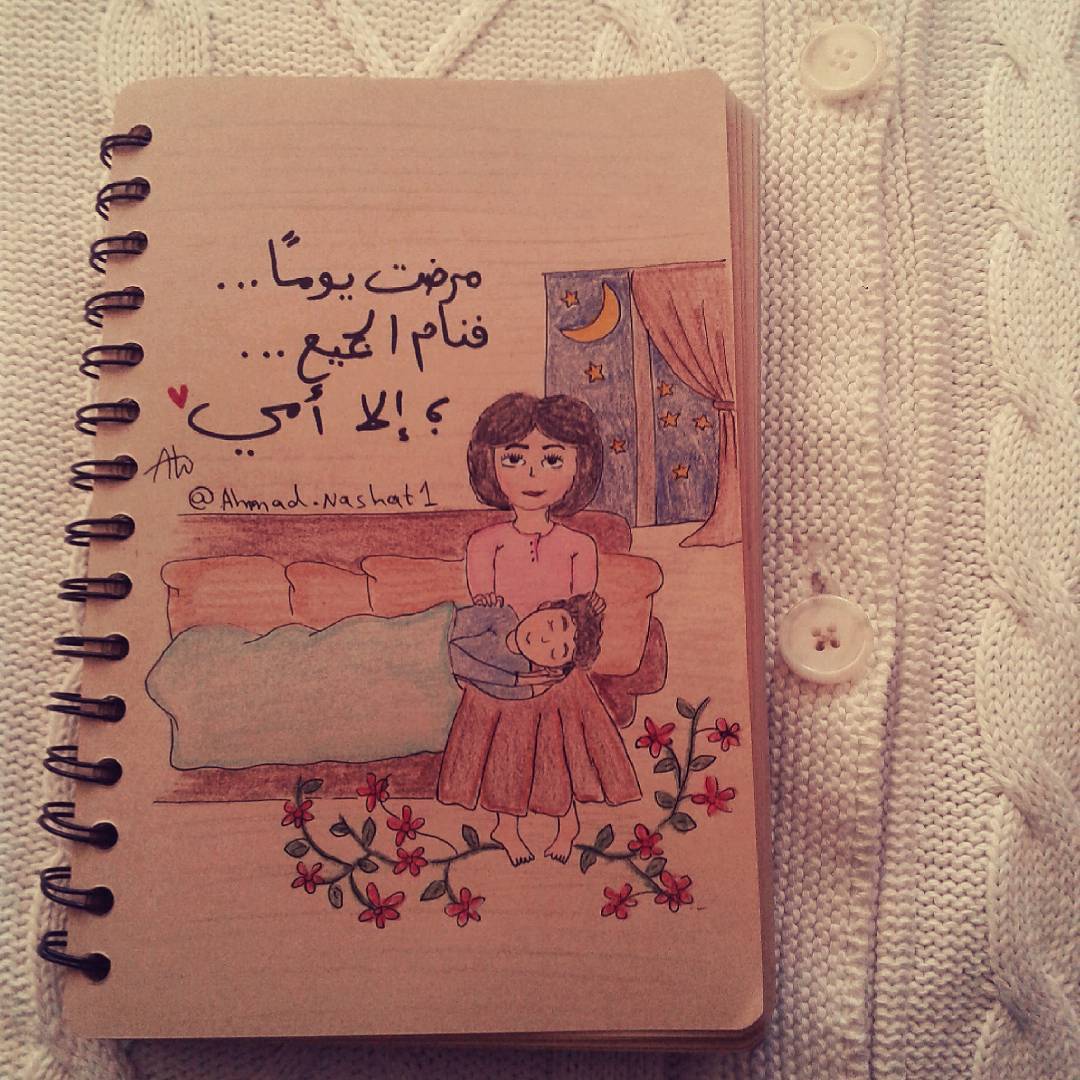 مرضت يومًا...
فنام الجميع...
؟ إلا أمي
AW
@Ahmad.Nashat1